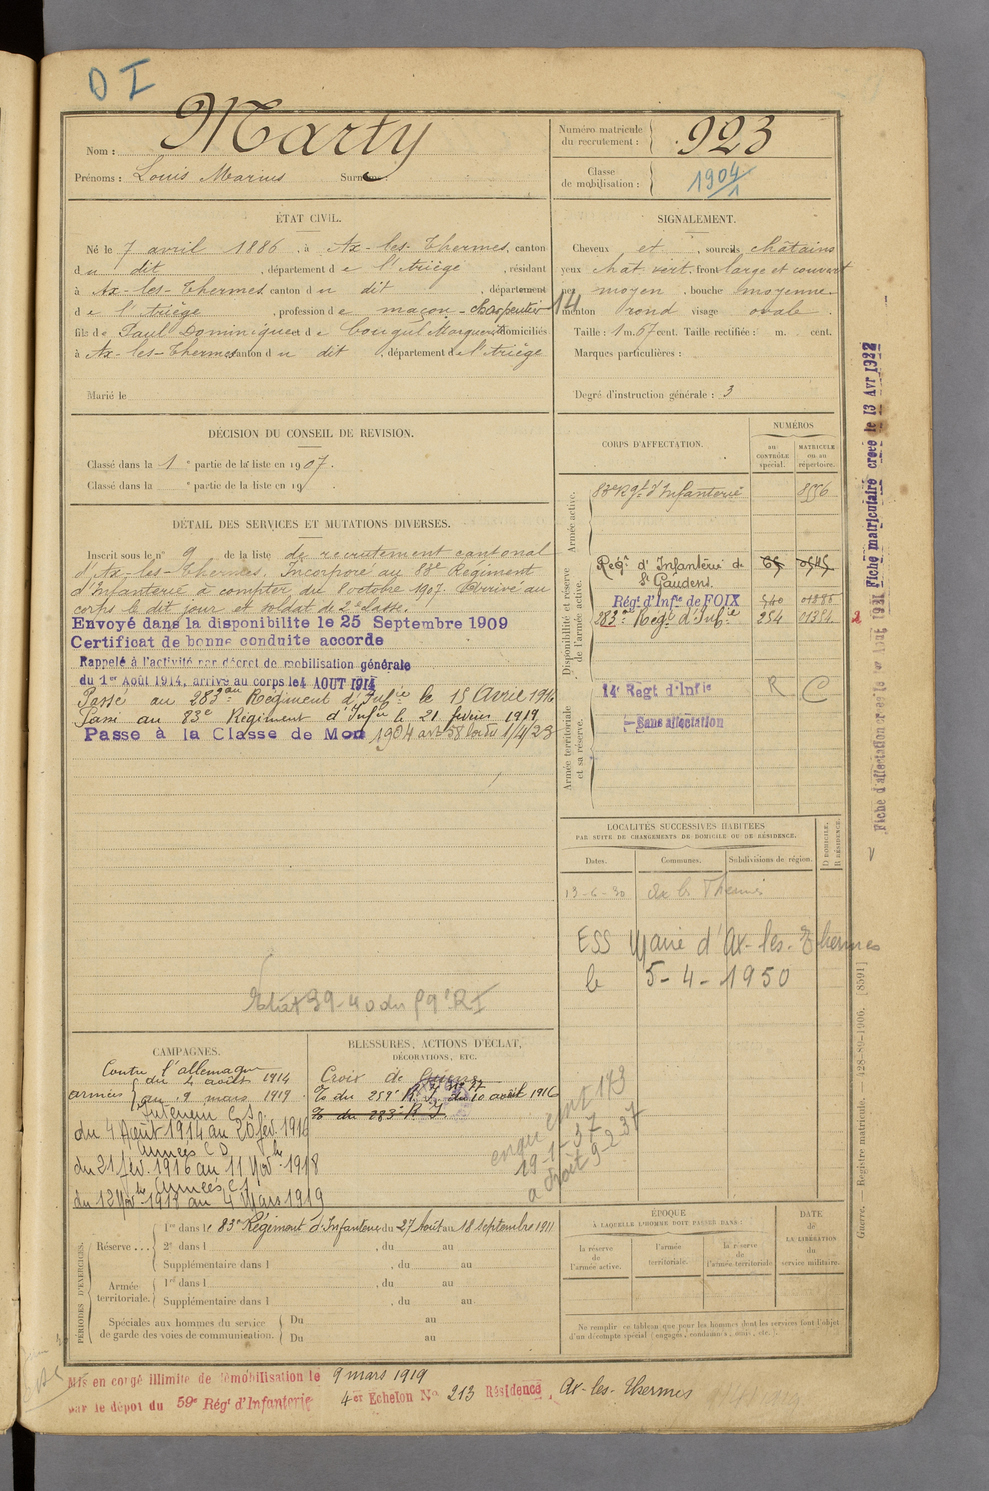 D I
Nom : Marty
Prénoms : Louis Marius Surnom :
Numéro matricule du recrutement : 923
Classe de mobilisation : 1904/1
ÉTAT CIVIL.
Né le 7 avril 1886, à Ax-les-Thermes, canton
du dit, département de l'Ariège, résidant
à Ax-les-Thermes canton du dit, département
de l'Ariège, profession de maçon - charpentier 14
fils de Paul Dominique et de Couquil Marguerite domiciliés
à Ax-les-Thermes canton du dit, département de l'Ariège
Marié le
SIGNALEMENT.
Cheveux et, sourcils châtains
yeux chat. vert. front large et couvert
nez moyen, bouche moyenne
menton rond visage ovale.
Taille : 1 m. 67 cent. Taille rectifiée : m. cent.
Marques particulières :
Degré d'instruction générale : 3
DÉCISION DU CONSEIL DE REVISION.
Classé dans la 1e partie de la liste en 1907.
Classé dans la e partie de la liste en 19
DÉTAIL DES SERVICES ET MUTATIONS DIVERSES.
Inscrit sous le n° 9 de la liste de recrutement cantonal
d'Ax-les-Thermes. Incorporé au 83e Régiment
d'Infanterie à compter du 8 octobre 1907. Arrivé au
corps le dit jour et soldat de 2e classe.
Envoyé dans la disponibilite le 25 Septembre 1909
Certificat de bonne conduite accorde
Rappelé à l'activité par décret de mobilisation générale
du 1er Août 1914, arrivé au corps le 4 AOUT 1914
Passé au 283e Régiment d'Infie le 15 Avril 1916
Passé au 83e Régiment d'Infie le 21 février 1919
Passe à la Classe de Mob 1904 art 58 loi du 1/4/23
Etat 39-40 du 59e RI
CORPS D'AFFECTATION.
NUMÉROS
au CONTRÔLE spécial.
MATRICULE ou au répertoire.
Armée active.
83e Rgt d'Infanterie 8556
Disponibilité et réserve de l'armée active.
Régt d'Infanterie de St Gaudens.
Régt d'Infie de FOIX 540 01886
283e Régt d'Infie 254 01354 2
Armée territoriale et sa réserve.
14e Regt d'Infie R C
Sans affectation
Fiche d'affectation créée le 1er Août 1921 Fiche matriculaire créée le 13 Avr 1922
LOCALITÉS SUCCESSIVES HABITÉES
PAR SUITE DE CHANGEMENTS DE DOMICILE OU DE RÉSIDENCE.
Dates. Communes. Subdivisions de région. D DOMICILE. R RÉSIDENCE.
13-6-30 Ax les Thermes
ESS Mairie d'Ax-les-Thermes
le 5-4-1950
CAMPAGNES.
Contre l'allemagne
armées du 4 août 1914
au 9 mars 1919
Intérieur C S
du 4 Août 1914 au 20 fév. 1916
Armées C D
du 21 fév. 1916 au 11 Nov. 1918
Armées C S
du 12 Nov. 1918 au 4 Mars 1919
BLESSURES, ACTIONS D'ÉCLAT,
DÉCORATIONS, ETC.
Croix de Guerre
% du 259e R. I. du 10 août 1916
% du 283e R I
19-1-37
a droit 9-2-37
PÉRIODES D'EXERCICES.
Réserve... 1re dans le 83e Régiment d'Infanterie du 27 Août au 18 Septembre 1911
2e dans l , du au
Supplémentaire dans l , du au
Armée territoriale. 1re dans l , du au
Supplémentaire dans l , du au
Spéciales aux hommes du service de garde des voies de communication. Du au
Du au
ÉPOQUE
À LAQUELLE L'HOMME DOIT PASSER DANS :
la réserve de l'armée active.
l'armée territoriale.
la réserve de l'armée territoriale
DATE de LA LIBÉRATION du service militaire.
Ne remplir ce tableau que pour les hommes dont les services font l'objet
d'un décompte spécial (engagés, condamnés, omis, etc.).
Guerre. — Registre matricule. 128-89-1906. [8591]
Mis en congé illimité de démobilisation le 9 mars 1919
par le dépot du 59e Régt d'Infanterie 4er Echelon No 213 Résidence Ax-les-Thermes